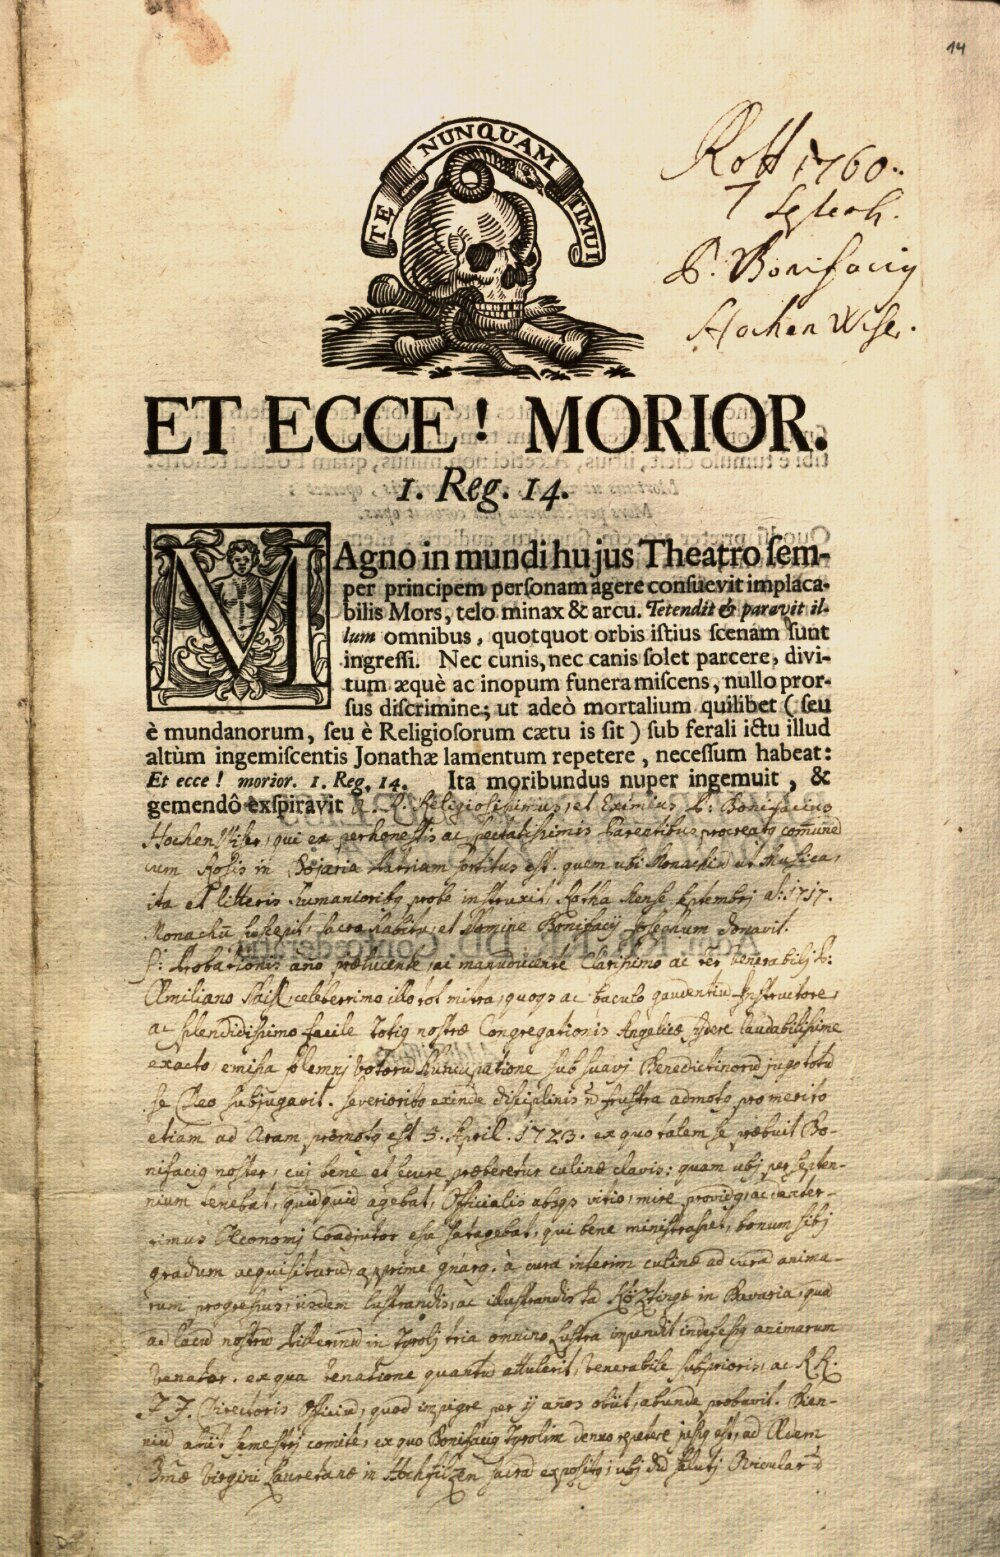 14
TE NUNQUAM TIMUI
Rott 1760.
7 Septemb.
P. Bonifaciq
Hochen Wiser.
ET ECCE! MORIOR.
1. Reg. 14.
MAgno in mundi hujus Theatro ſem-
per principem perſonam agere conſuevit implaca-
bilis Mors, telo minax & arcu. Tetendit & paravit il-
lum omnibus, quotquot orbis iſtius ſcenam ſunt
ingreſſi. Nec cunis, nec canis ſolet parcere, divi-
tum æquè ac inopum funera miſcens, nullo pror-
ſus diſcrimine; ut adeò mortalium quilibet (ſeu
è mundanorum, ſeu è Religioſorum cætu is ſit) ſub ferali ictu illud
altùm ingemiſcentis Jonathæ lamentum repetere, neceſſum habeat:
Et ecce! morior. 1. Reg. 14. Ita moribundus nuper ingemuit, &
gemendô exſpiravit Religiosissimus, et Eximius P: Bonifacius
Hochen Wiser, qui ex perhonestis ac spectatissimis Parentibus procreatq
in Bojaria Patriam sortitus est. quem ubi Monachia ut Musica,
ita et litteris humanioribq probe instruxit, Rotha Mense Septembri aº: 1717.
Monachū suscepit, sacro habitu, et Nomine Bonifacij donavit.
Probationis año prælucente, ac manuducente Clarissimo ac Venerabilj P:
Æmiliano celeberrimo illo tot mitra, quoqs ac baculo gaudentiū Instructore,
ac splendidissimo facile totiq nostræ Congregationis Angelicæ sydere laudabilissime
exacto, emissa solemnj votorū Nuncupatione sub suavj Benedictinorū jugo totū
se Deo subjugavit. severioribq exinde disciplinis frustra admotq pro merito
etiam ad Aram promotq est 5. April. 1723. ex quo talem se præbuit Bo-
nifaciq noster, cuj bene et secure præberetur culinæ clavis: quam ubj per septen-
nium tenebat, quidquid agebat, Officialis absqs vitio, mire providq, ac dexter-
rimus Œconomj Coadjutor esse satagebat, qui bene ministrasset, bonum sibj
gradum acquisiturū, apprime gnarq. à cura interim culinæ ad curā anima-
rum progressus, iisdem lustrandis, ac illustrandis tā Közting in Bavaria, quā
ad lacū nostrū Pillerseeū in Tyrolj tria omnino Lustra impendit indefessq animarum
venator. ex qua venatione quantū attulerit, venerabile subprioris, ac R.R.
F.F. Directoris Officiū, quod impigre per ij años obiit, abunde probavit. Bien-
niū abiit semestrj comite, ex quo Bonifaciq Tyrolim denuo repetere jussq est, ad Ædem
Virginj Lauretanæ in Hochfilzen sacrā expositq, ubj